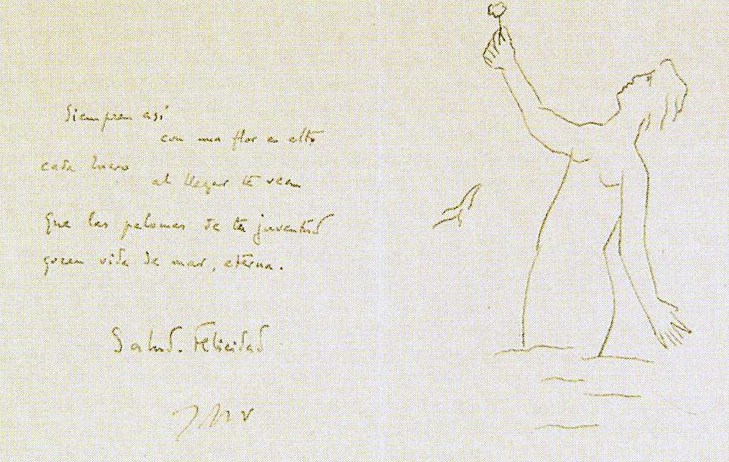 Siempren así
con una flor en alto
cada Enero
al llegar te vean
Que las palomas de tu juventud
gocen vida de mar, eterna.
Salud. Felicidad